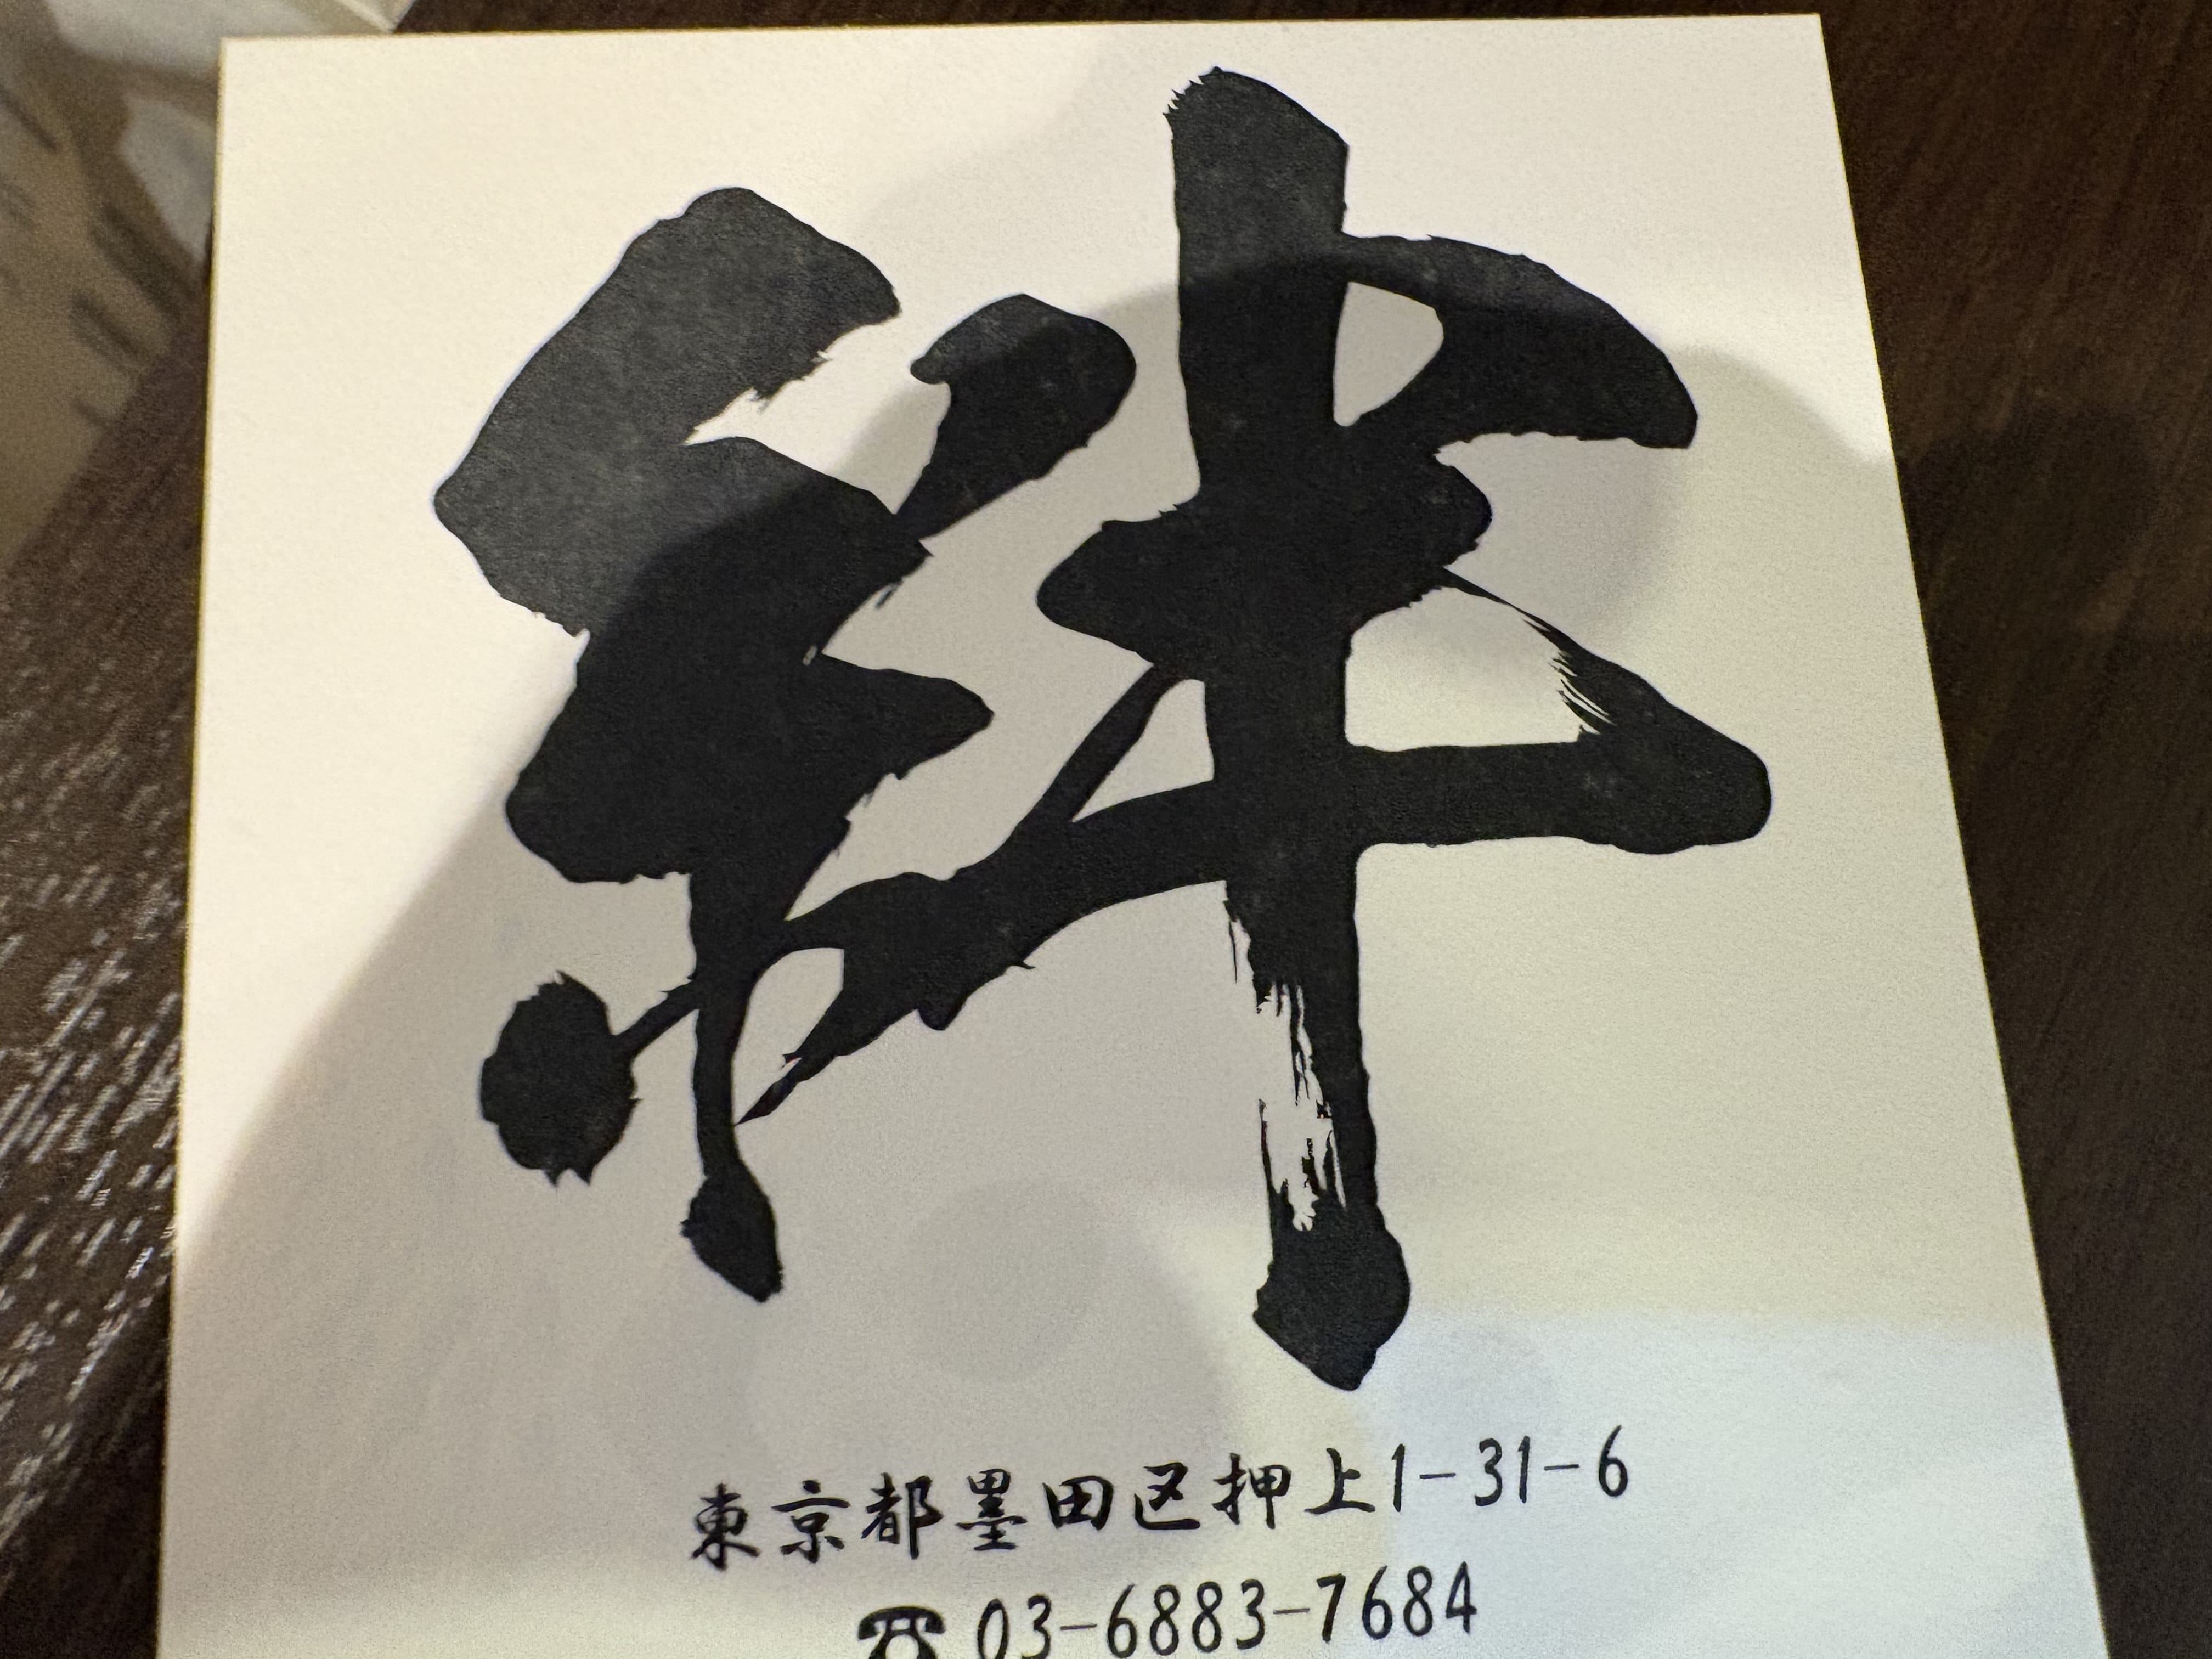 絆
東京都墨田区押上1-31-6
☎ 03-6883-7684